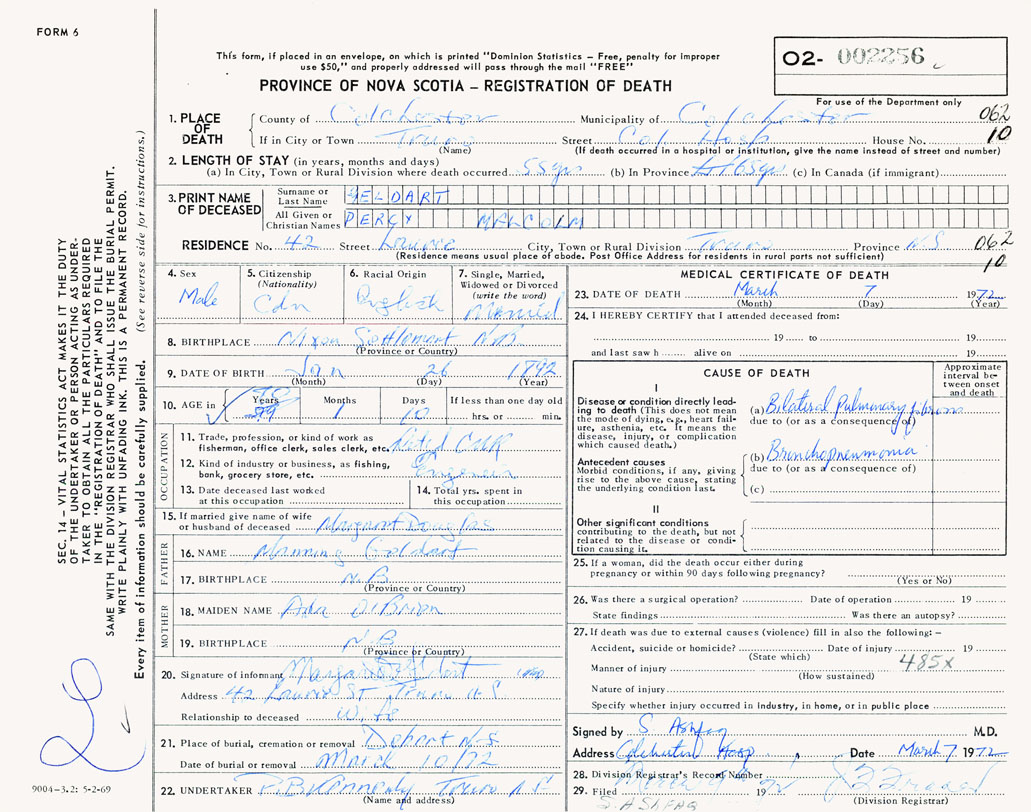 FORM 6
This form, if placed in an envelope, on which is printed "Dominion Statistics – Free, penalty for improper
use $50," and properly addressed will pass through the mail "FREE"
PROVINCE OF NOVA SCOTIA – REGISTRATION OF DEATH
02- 002256
For use of the Department only
SEC. 14 – VITAL STATISTICS ACT MAKES IT THE DUTY
OF THE UNDERTAKER OR PERSON ACTING AS UNDER-
TAKER TO OBTAIN ALL THE PARTICULARS REQUIRED
IN THE "REGISTRATION OF DEATH" AND TO FILE THE
SAME WITH THE DIVISION REGISTRAR WHO SHALL ISSUE THE BURIAL PERMIT.
WRITE PLAINLY WITH UNFADING INK. THIS IS A PERMANENT RECORD.
Every item of information should be carefully supplied. (See reverse side for instructions.)
1. PLACE OF DEATH County of Colchester Municipality of Colchester 062
If in City or Town Truro Street Col. Hosp House No. 10
(Name) (If death occurred in a hospital or institution, give the name instead of street and number)
2. LENGTH OF STAY (in years, months and days)
(a) In City, Town or Rural Division where death occurred 55yrs (b) In Province 65yrs (c) In Canada (if immigrant)
3. PRINT NAME OF DECEASED Surname or Last Name GELDART
All Given or Christian Names PERCY MALCOLM
RESIDENCE No. 42 Street Laurie City, Town or Rural Division Truro Province N.S 062
(Residence means usual place of abode. Post Office Address for residents in rural parts not sufficient) 10
4. Sex Male
5. Citizenship (Nationality) Cdn
6. Racial Origin English
7. Single, Married, Widowed or Divorced (write the word) Married
8. BIRTHPLACE Settlement N.B.
(Province or Country)
9. DATE OF BIRTH Jan 26 1892
(Month) (Day) (Year)
10. AGE in Years 79 Months 1 Days 10 If less than one day old
hrs. or min.
OCCUPATION
11. Trade, profession, or kind of work as
fisherman, office clerk, sales clerk, etc. Retired
12. Kind of industry or business, as fishing,
bank, grocery store, etc.
13. Date deceased last worked
at this occupation
14. Total yrs. spent in
this occupation
15. If married give name of wife
or husband of deceased Margaret Douglas
FATHER
16. NAME Manning Geldart
17. BIRTHPLACE N.B
(Province or Country)
MOTHER
18. MAIDEN NAME Ada O'Brien
19. BIRTHPLACE N.B
(Province or Country)
20. Signature of informant Margaret Geldart
Address 42 Laurie St Truro N S
Relationship to deceased Wife
21. Place of burial, cremation or removal Debert N.S.
Date of burial or removal March 10/72
22. UNDERTAKER Truro N.S
(Name and address)
9004–3.2: 5-2-69
MEDICAL CERTIFICATE OF DEATH
23. DATE OF DEATH March 7 1972
(Month) (Day) (Year)
24. I HEREBY CERTIFY that I attended deceased from:
19 to 19
and last saw h alive on 19
CAUSE OF DEATH
Approximate interval between onset and death
I
Disease or condition directly lead-
ing to death (This does not mean
the mode of dying, e.g., heart fail-
ure, asthenia, etc. It means the
disease, injury, or complication
which caused death.)
(a) Bilateral Pulmonary fibrosis
due to (or as a consequence of)
Antecedent causes
Morbid conditions, if any, giving
rise to the above cause, stating
the underlying condition last.
(b) Bronchopneumonia
due to (or as a consequence of)
(c)
II
Other significant conditions
contributing to the death, but not
related to the disease or condi-
tion causing it.
25. If a woman, did the death occur either during
pregnancy or within 90 days following pregnancy?
(Yes or No)
26. Was there a surgical operation? Date of operation 19
State findings Was there an autopsy?
27. If death was due to external causes (violence) fill in also the following: –
Accident, suicide or homicide? Date of injury 19
(State which)
Manner of injury 485X
(How sustained)
Nature of injury
Specify whether injury occurred in industry, in home, or in public place
Signed by S Ashfaq M.D.
Address Colchester Hosp Date March 7 1972
28. Division Registrar's Record Number
29. Filed March 9 1972
(Division Registrar)
S ASHFAQ